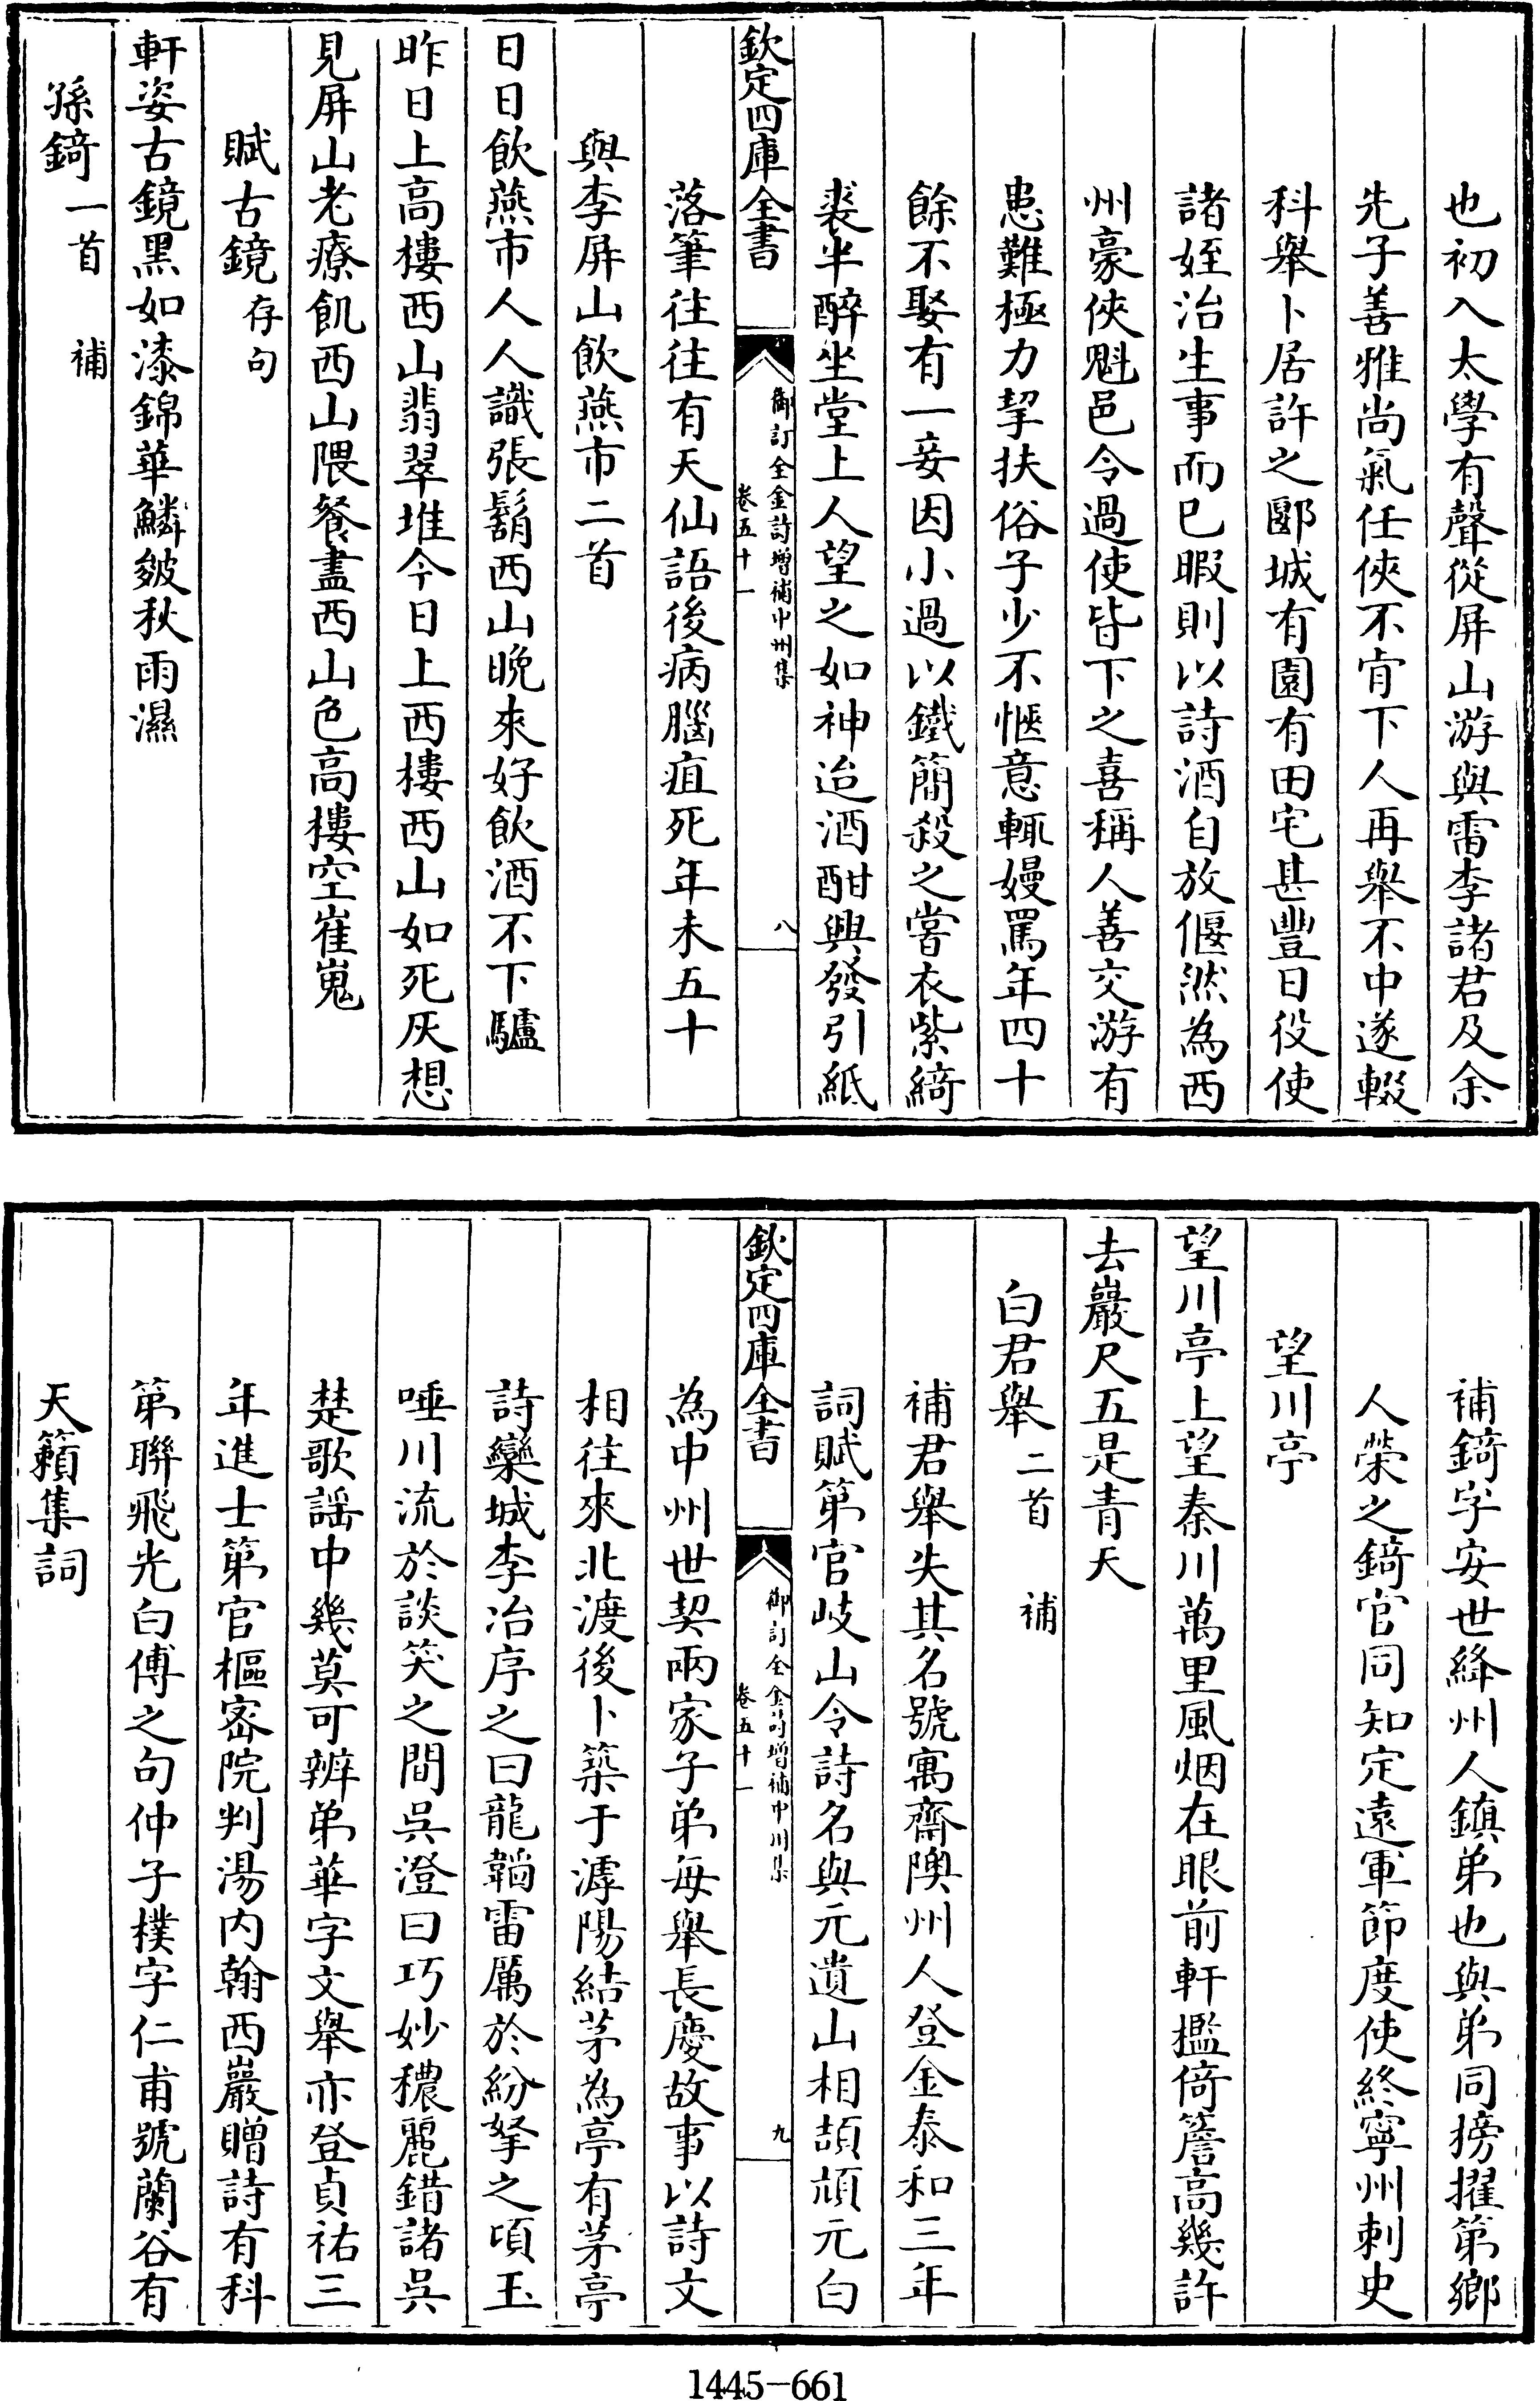 也初入太學有聲從屏山游與雷李諸君及余
先子善雅尚氣任俠不肯下人再舉不中遂輟
科舉卜居許之郾城有園有田宅甚豐日役使
諸姪治生事而已暇則以詩酒自放偃然為西
州豪俠魁邑令過使皆下之喜稱人善交游有
患難極力挈扶俗子少不愜意輒嫚罵年四十
餘不娶有一妾因小過以鐵簡殺之嘗衣紫綺
裘半醉坐堂上人望之如神迨酒酣興發引紙
欽定四庫全書
御訂全金詩增補中州集
卷五十一
八
落筆往往有天仙語後病腦疽死年未五十
與李屏山飲燕市二首
日日飲燕市人人識張鬍西山晚來好飲酒不下驢
昨日上高樓西山翡翠堆今日上西樓西山如死灰想
見屏山老療飢西山隈餐盡西山色高樓空崔嵬
賦古鏡存句
軒姿古鏡黑如漆錦華鱗皴秋雨濕
孫錡一首 補
補錡字安世絳州人鎮弟也與弟同牓擢第鄉
人榮之錡官同知定遠軍節度使終寧州刺史
望川亭
望川亭上望秦川萬里風烟在眼前軒檻倚簷高幾許
去巖尺五是青天
白君舉二首 補
補君舉失其名號寓齋隩州人登金泰和三年
詞賦第官岐山令詩名與元遺山相頡頏元白
欽定四庫全書
御訂全金詩增補中州集
卷五十一
九
為中州世契兩家子弟每舉長慶故事以詩文
相往來北渡後卜築于滹陽結茅為亭有茅亭
詩欒城李冶序之曰龍韜雷厲於紛拏之頃玉
唾川流於談笑之間吳澄曰巧妙穠麗錯諸吳
楚歌謡中幾莫可辨弟華字文舉亦登貞祐三
年進士第官樞密院判湯内翰西巖贈詩有科
第聯飛光白傅之句仲子樸字仁甫號蘭谷有
天籟集詞
1445-661